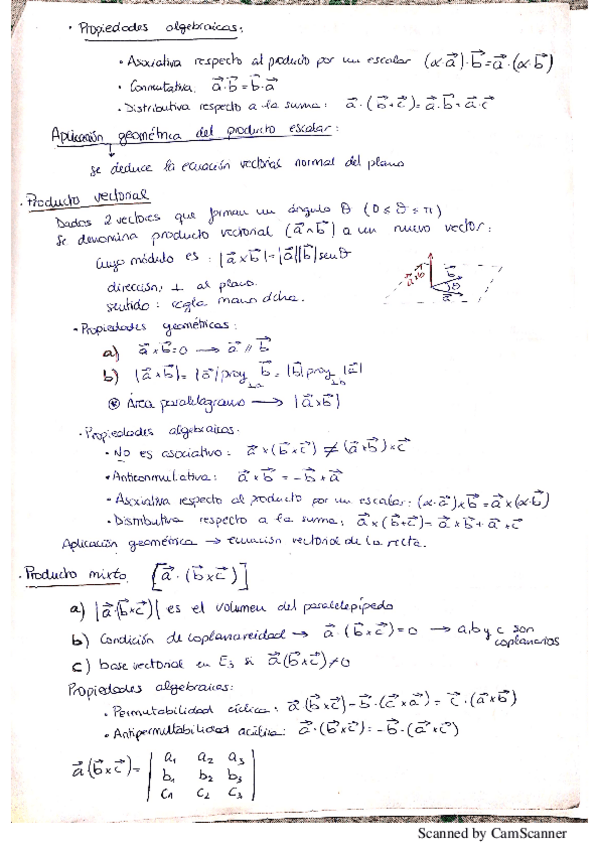 · Propiedades algebraicas:
• Asociativa respecto al producto por un escalar (α·a⃗)·b⃗ = a⃗·(α·b⃗)
• Conmutativa: a⃗·b⃗ = b⃗·a⃗
• Distributiva respecto a la suma: a⃗·(b⃗+c⃗) = a⃗·b⃗ + a⃗·c⃗
Aplicación geométrica del producto escalar:
↓
se deduce la ecuación vectorial normal del plano
· Producto vectorial
Dados 2 vectores que forman un ángulo θ (0 ≤ θ ≤ π)
se denomina producto vectorial (a⃗∧b⃗) a un nuevo vector:
cuyo módulo es: |a⃗×b⃗| = |a⃗||b⃗| sen θ
dirección: ⊥ al plano.
sentido: regla mano dcha.
a⃗×b⃗
b⃗
θ
a⃗
• Propiedades geométricas:
a) a⃗×b⃗=0 → a⃗ // b⃗
b) |a⃗×b⃗| = |a⃗| proy⊥a b⃗ = |b⃗| proy⊥b |a⃗|
⊛ Área paralelogramo → |a⃗×b⃗|
· Propiedades algebraicas:
• No es asociativo: a⃗×(b⃗×c⃗) ≠ (a⃗×b⃗)×c⃗
• Anticonmutativa: a⃗×b⃗ = -b⃗×a⃗
• Asociativa respecto al producto por un escalar: (α·a⃗)×b⃗ = a⃗×(α·b⃗)
• Distributiva respecto a la suma: a⃗×(b⃗+c⃗) = a⃗×b⃗ + a⃗×c⃗
Aplicación geométrica → ecuación vectorial de la recta.
· Producto mixto [a⃗·(b⃗×c⃗)]
a) |a⃗(b⃗×c⃗)| es el volumen del paralelepípedo
b) Condición de coplanareidad → a⃗·(b⃗×c⃗)=0 → a,b y c son
coplanarios
c) base vectorial en E3 si a⃗(b⃗×c⃗)≠0
Propiedades algebraicas:
• Permutabilidad cíclica: a⃗(b⃗×c⃗) = b⃗·(c⃗×a⃗) = c⃗·(a⃗×b⃗)
• Antipermutabilidad acíclica: a⃗·(b⃗×c⃗) = -b⃗·(a⃗×c⃗)
a⃗(b⃗×c⃗) = | a1 a2 a3 |
| b1 b2 b3 |
| c1 c2 c3 |
Scanned by CamScanner